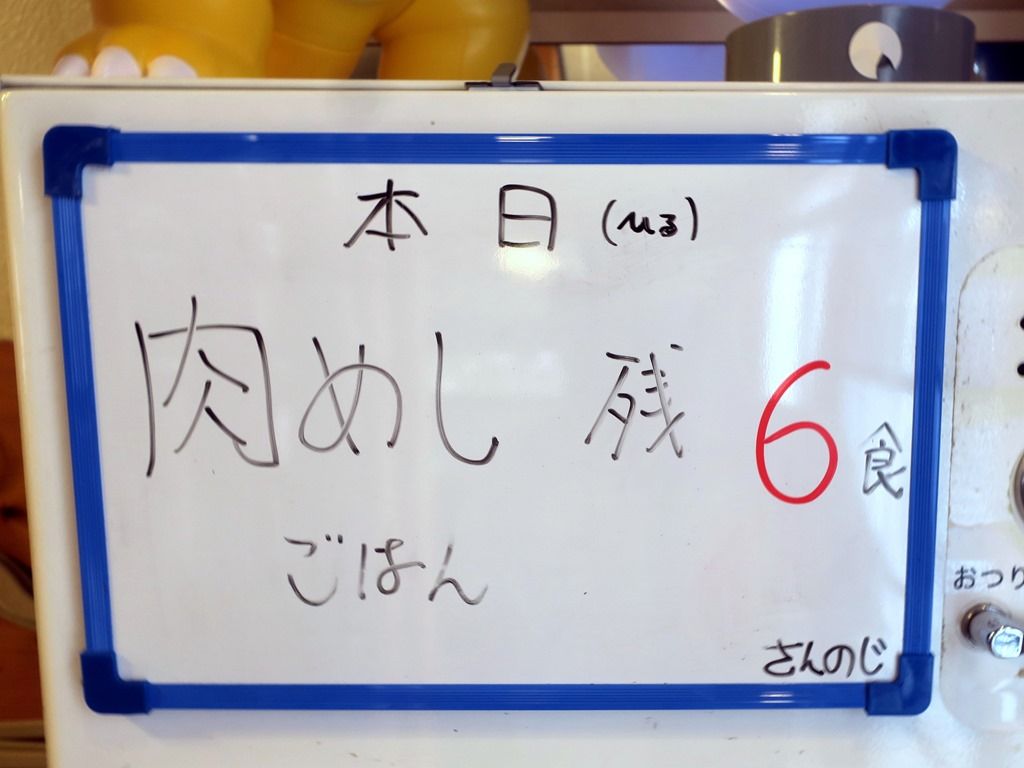 本日(ひる)
肉めし 残 6 食
ごはん
さんのじ
おつり